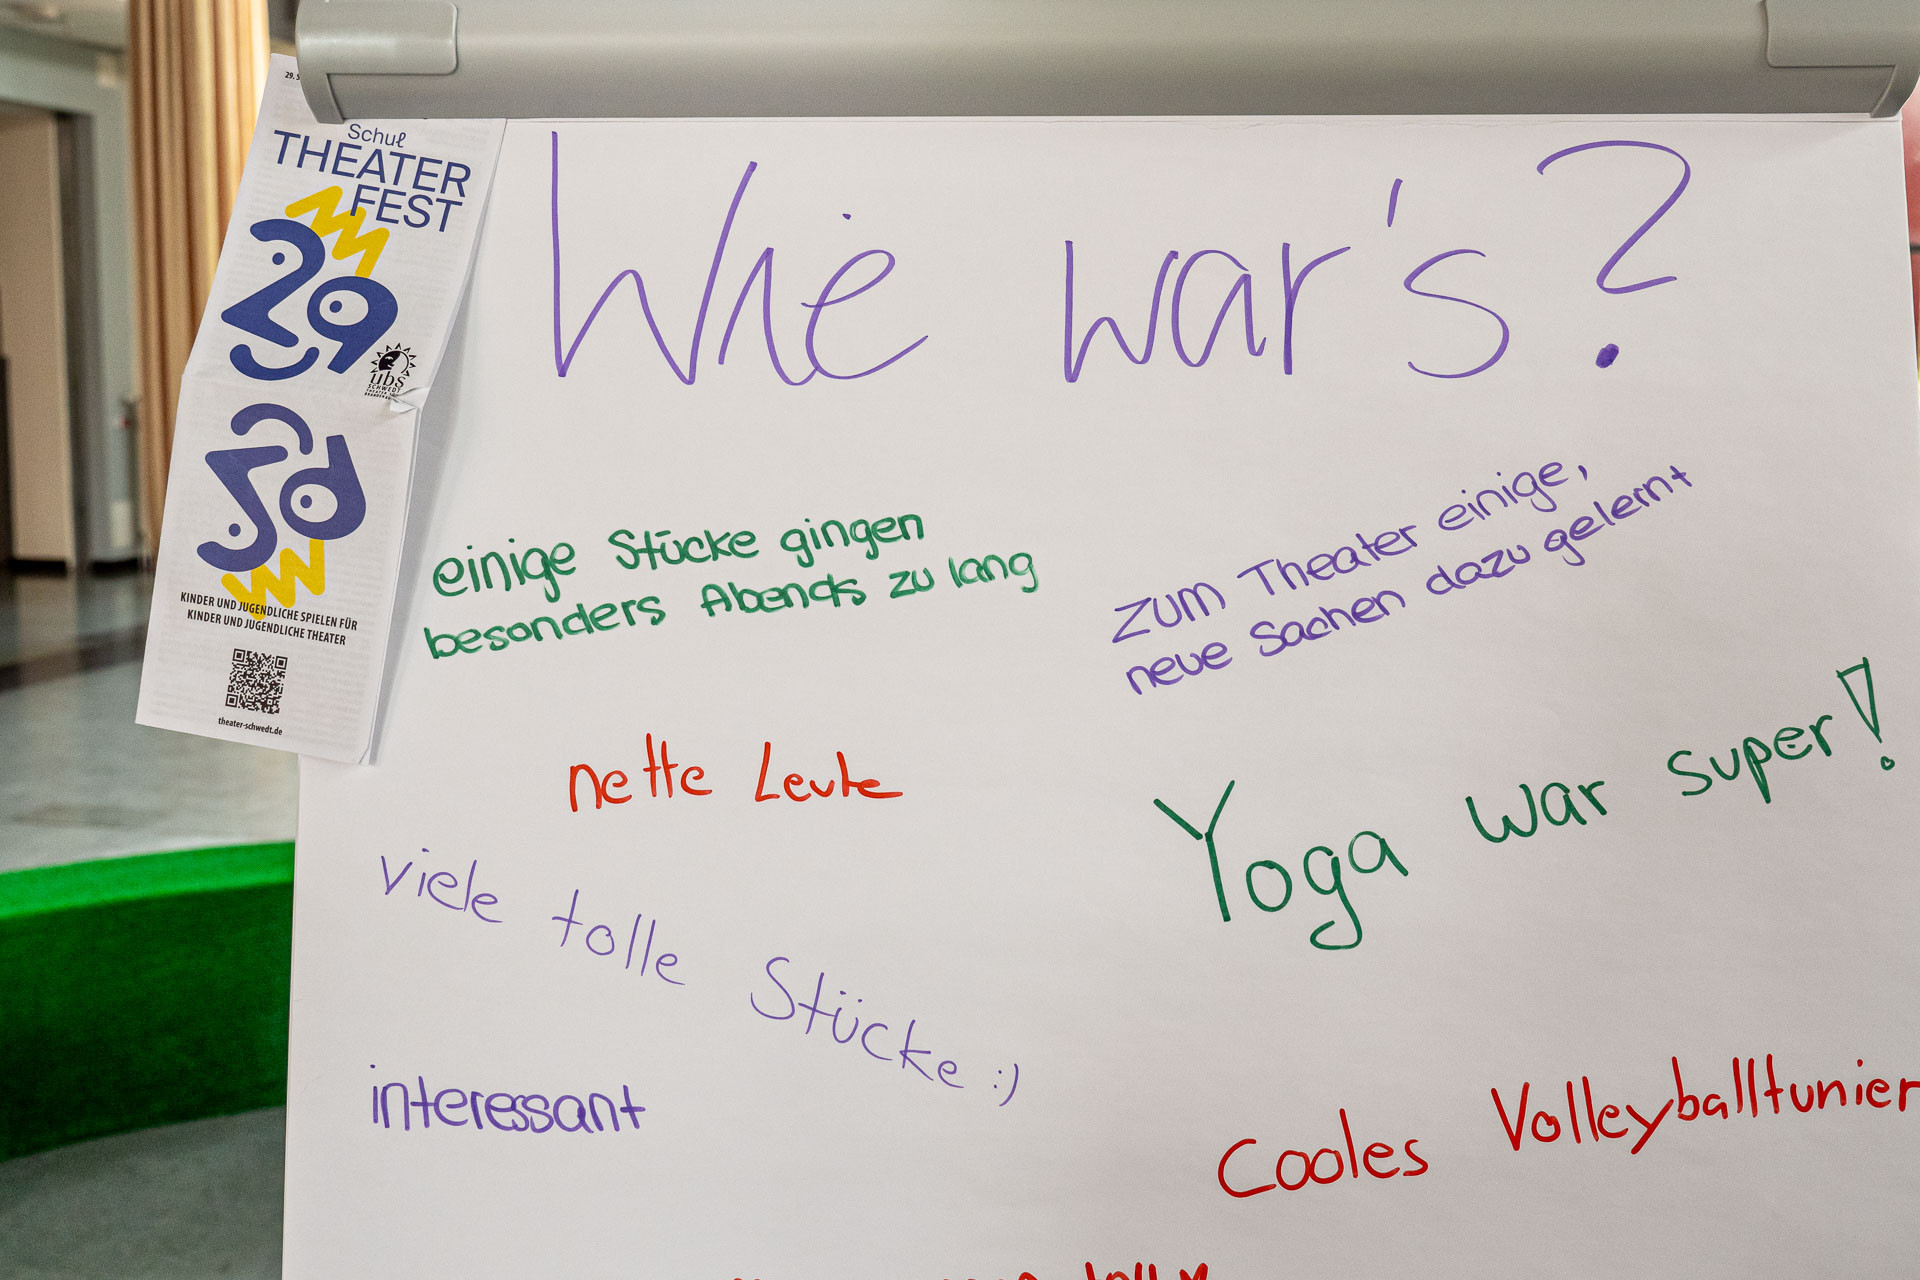 29. S
Schul
THEATER
FEST
29
ubs
SCHWEDT
KINDER UND JUGENDLICHE SPIELEN FÜR
KINDER UND JUGENDLICHE THEATER
theater-schwedt.de
Wie war's?
einige Stücke gingen
besonders Abends zu lang
zum Theater einige,
neue Sachen dazu gelernt
nette Leute
Yoga war super!
viele tolle Stücke :)
interessant
Cooles Volleyballtunier